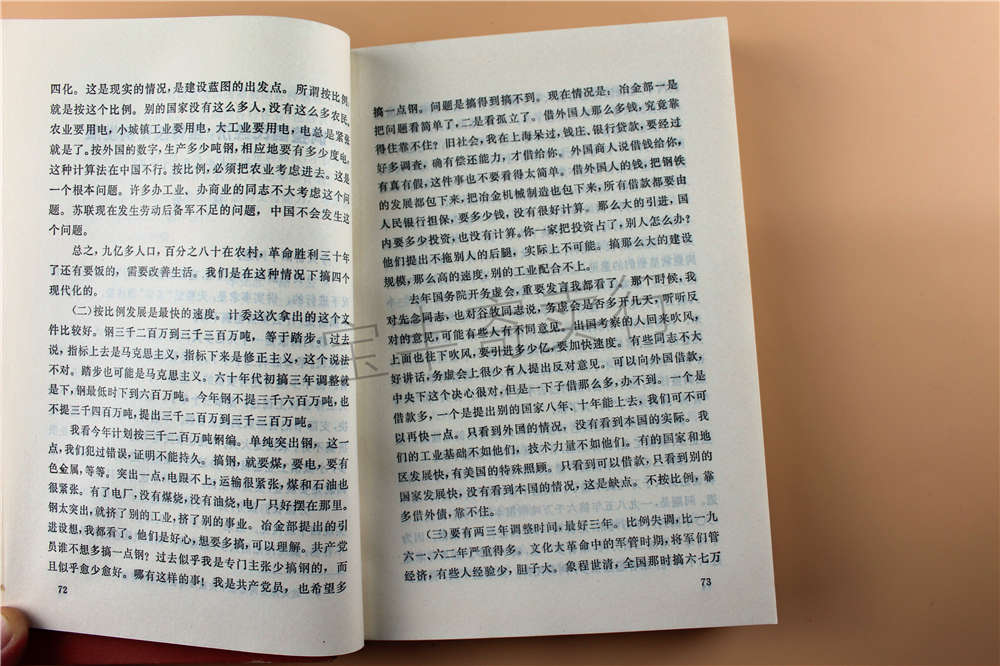 四化。这是现实的情况，是建设蓝图的出发点。所谓按比例，
就是按这个比例。别的国家没有这么多人，没有这么多农民。
农业要用电，小城镇工业要用电，大工业要用电，电总是紧张
就是了。按外国的数字，生产多少吨钢，相应地要有多少度电，
这种计算法在中国不行。按比例，必须把农业考虑进去。这是
一个根本问题。许多办工业、办商业的同志不大考虑这个问
题。苏联现在发生劳动后备军不足的问题，中国不会发生这
个问题。
总之，九亿多人口，百分之八十在农村，革命胜利三十年
了还有要饭的，需要改善生活。我们是在这种情况下搞四个
现代化的。
（二）按比例发展是最快的速度。计委这次拿出的这个文
件比较好。钢三千二百万到三千三百万吨，等于踏步。过去
说，指标上去是马克思主义，指标下来是修正主义，这个说法
不对。踏步也可能是马克思主义。六十年代初搞三年调整就
是下，钢最低时下到六百万吨。今年钢不提三千六百万吨，也
不提三千四百万吨，提出三千二百万到三千三百万吨。
我看今年计划按三千二百万吨钢编。单纯突出钢，这一
点，我们犯过错误，证明不能持久。搞钢，就要煤，要电，要有
色金属，等等。突出一点，电跟不上，运输很紧张，煤和石油也
很紧张。有了电厂，没有煤烧，没有油烧，电厂只好摆在那里。
钢太突出，就挤了别的工业，挤了别的事业。冶金部提出的引
进设想，我都看了。他们是好心，想要多搞，可以理解。共产党
员谁不想多搞一点钢？过去似乎我是专门主张少搞钢的，而
且似乎愈少愈好。哪有这样的事！我是共产党员，也希望多
72
搞一点钢。问题是搞得到搞不到。现在情况是：冶金部一是
把问题看简单了，二是看孤立了。借外国人那么多钱，究竟靠
得住靠不住？旧社会，我在上海呆过，钱庄、银行贷款，要经过
好多调查，确有偿还能力，才借给你。外国商人说借钱给你，
有真有假，这件事也不要看得太简单。借外国人的钱，把钢铁
的发展都包下来，把冶金机械制造也包下来，所有借款都要由
人民银行担保，要多少钱，没有很好计算。那么大的引进，国
内要多少投资，也没有计算。你一家把投资占了，别人怎么办？
他们提出不拖别人的后腿，实际上不可能。搞那么大的建设
规模，那么高的速度，别的工业配合不上。
去年国务院开务虚会，重要发言我都看了。那个时候，我
对先念同志，也对谷牧同志说，务虚会是否多开几天，听听反
对的意见，可能有些人有不同意见。出国考察的人回来吹风，
上面也往下吹风，要引进多少亿，要加快速度。有些同志不大
好讲话，务虚会上很少有人提出反对意见。可以向外国借款，
中央下这个决心很对，但是一下子借那么多，办不到。一个是
借款多，一个是提出别的国家八年、十年能上去，我们可不可
以再快一点。只看到外国的情况，没有看到本国的实际。我
们的工业基础不如他们，技术力量不如他们。有的国家和地
区发展快，有美国的特殊照顾。只看到可以借款，只看到别的
国家发展快，没有看到本国的情况，这是缺点。不按比例，靠
多借外债，靠不住。
（三）要有两三年调整时间，最好三年。比例失调，比一九
六一、六二年严重得多。文化大革命中的军管时期，将军们管
经济，有些人经验少，胆子大。象程世清，全国那时搞六七万
73